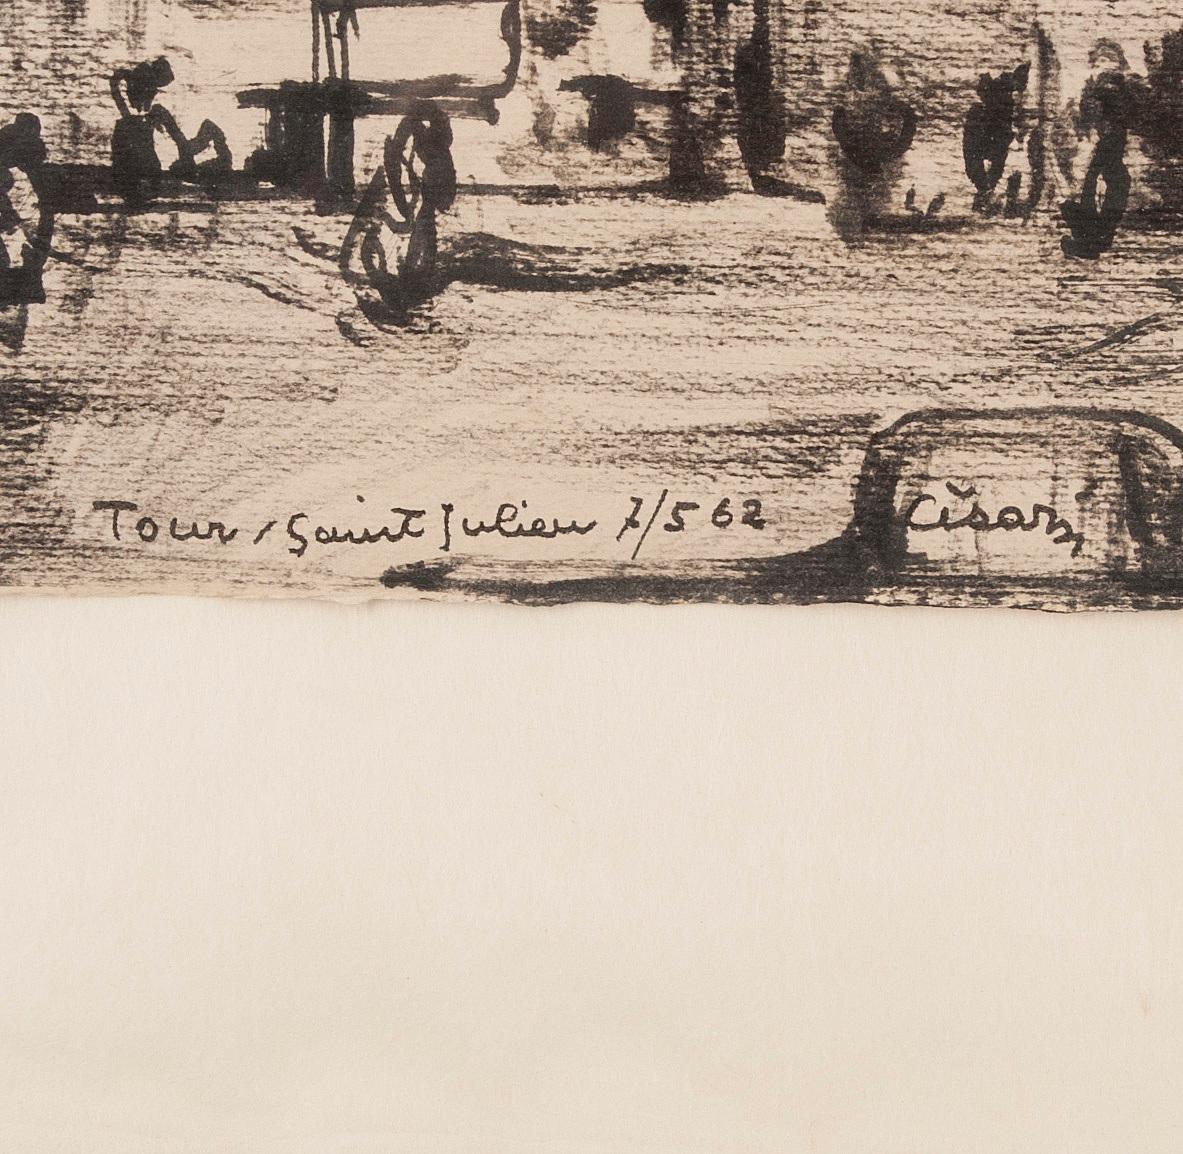 Tour, Saint Julien 7/5 62 Cìsarž